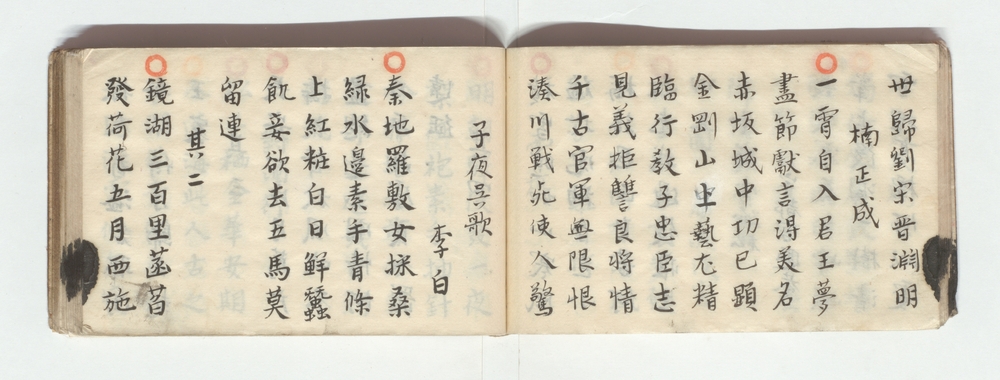 世歸劉宋晋淵明
楠正成
一宵自入君王夢
盡節獻言得美名
赤坂城中功已顕
金剛山里藝尤精
臨行教子忠臣志
見義拒讐良将情
千古官軍無限恨
湊川戰死使人驚
子夜吴歌
李白
秦地羅敷女採桑
緑水邉素手青條
上紅粧白日鮮蠶
飢妾欲去五馬莫
留連
其二
鏡湖三百里菡萏
發荷花五月西施